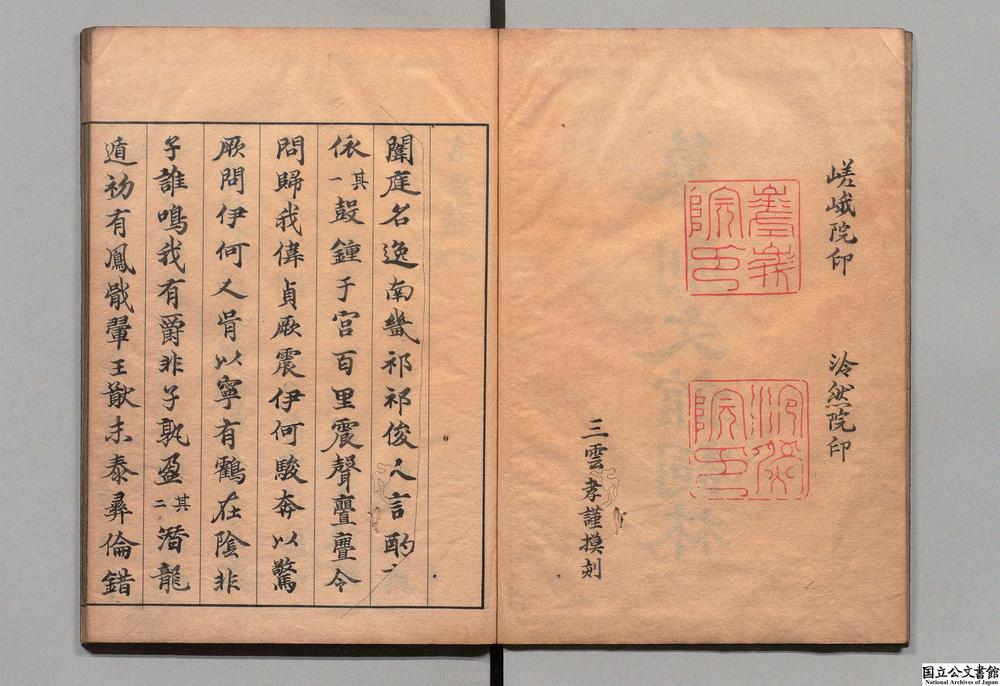 嵯峨院印
冷然院印
嵯峨院印
冷然院印
三雲孝謹摸刻
闈庭名逸南畿祁祁俊人言酌
依其一鼓鐘于宮百里震聲亹亹令
問歸我偉貞厥震伊何駿奔以驚
厥問伊何人胥以寧有鶴在陰非
子誰鳴我有爵非子孰盈其二潛龍
遁初有鳳戢翬王猷未泰彞倫錯
国立公文書館
National Archives of Japan